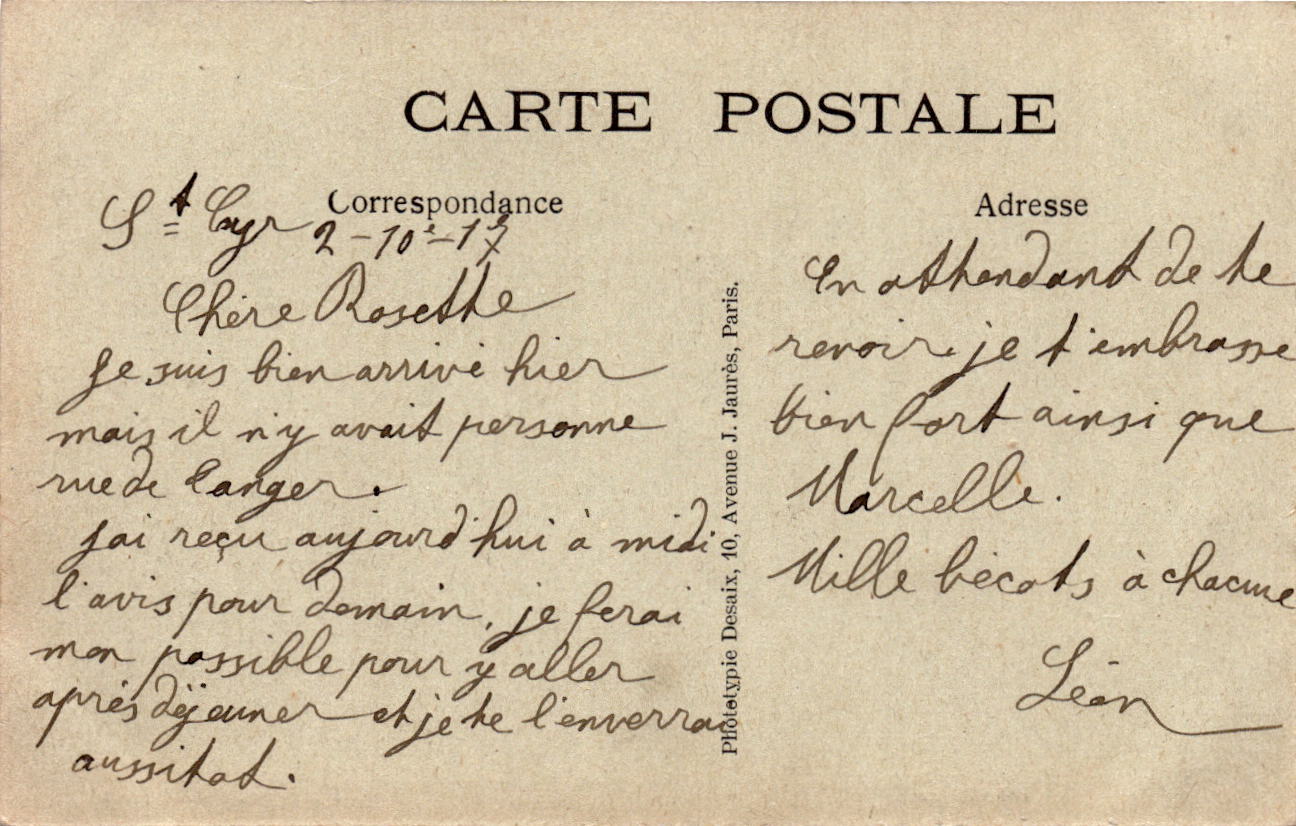 CARTE POSTALE
Correspondance
Adresse
St Cyr 2-10e-17
Chère Rosette
Je suis bien arrivé hier
mais il n'y avait personne
rue de Langer.
J'ai reçu aujourd'hui à midi
l'avis pour demain, je ferai
mon possible pour y aller
après déjeuner et je te l'enverrai
aussitot.
Phototypie Desaix, 10, Avenue J. Jaurès, Paris.
En attendant de te
revoir je t'embrasse
bien fort ainsi que
Marcelle.
Mille bécots à chacune
Léon